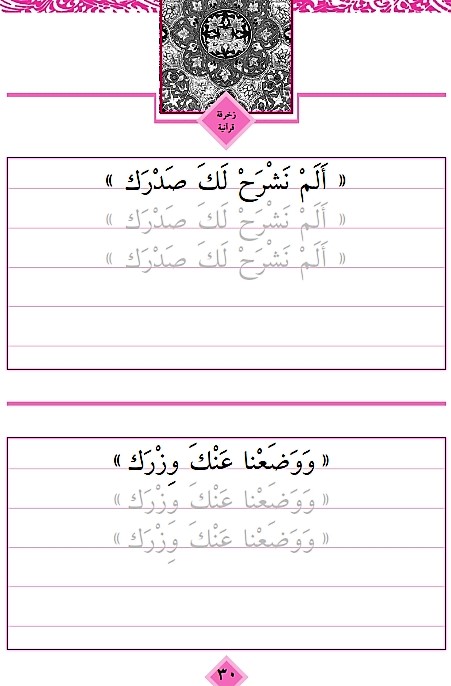 زخرفة
قرآنية
« أَلَمْ نَشْرَحْ لَكَ صَدْرَك »
« أَلَمْ نَشْرَحْ لَكَ صَدْرَك »
« أَلَمْ نَشْرَحْ لَكَ صَدْرَك »
« وَوَضَعْنا عَنْكَ وِزْرَك »
« وَوَضَعْنا عَنْكَ وِزْرَك »
« وَوَضَعْنا عَنْكَ وِزْرَك »
٣٠